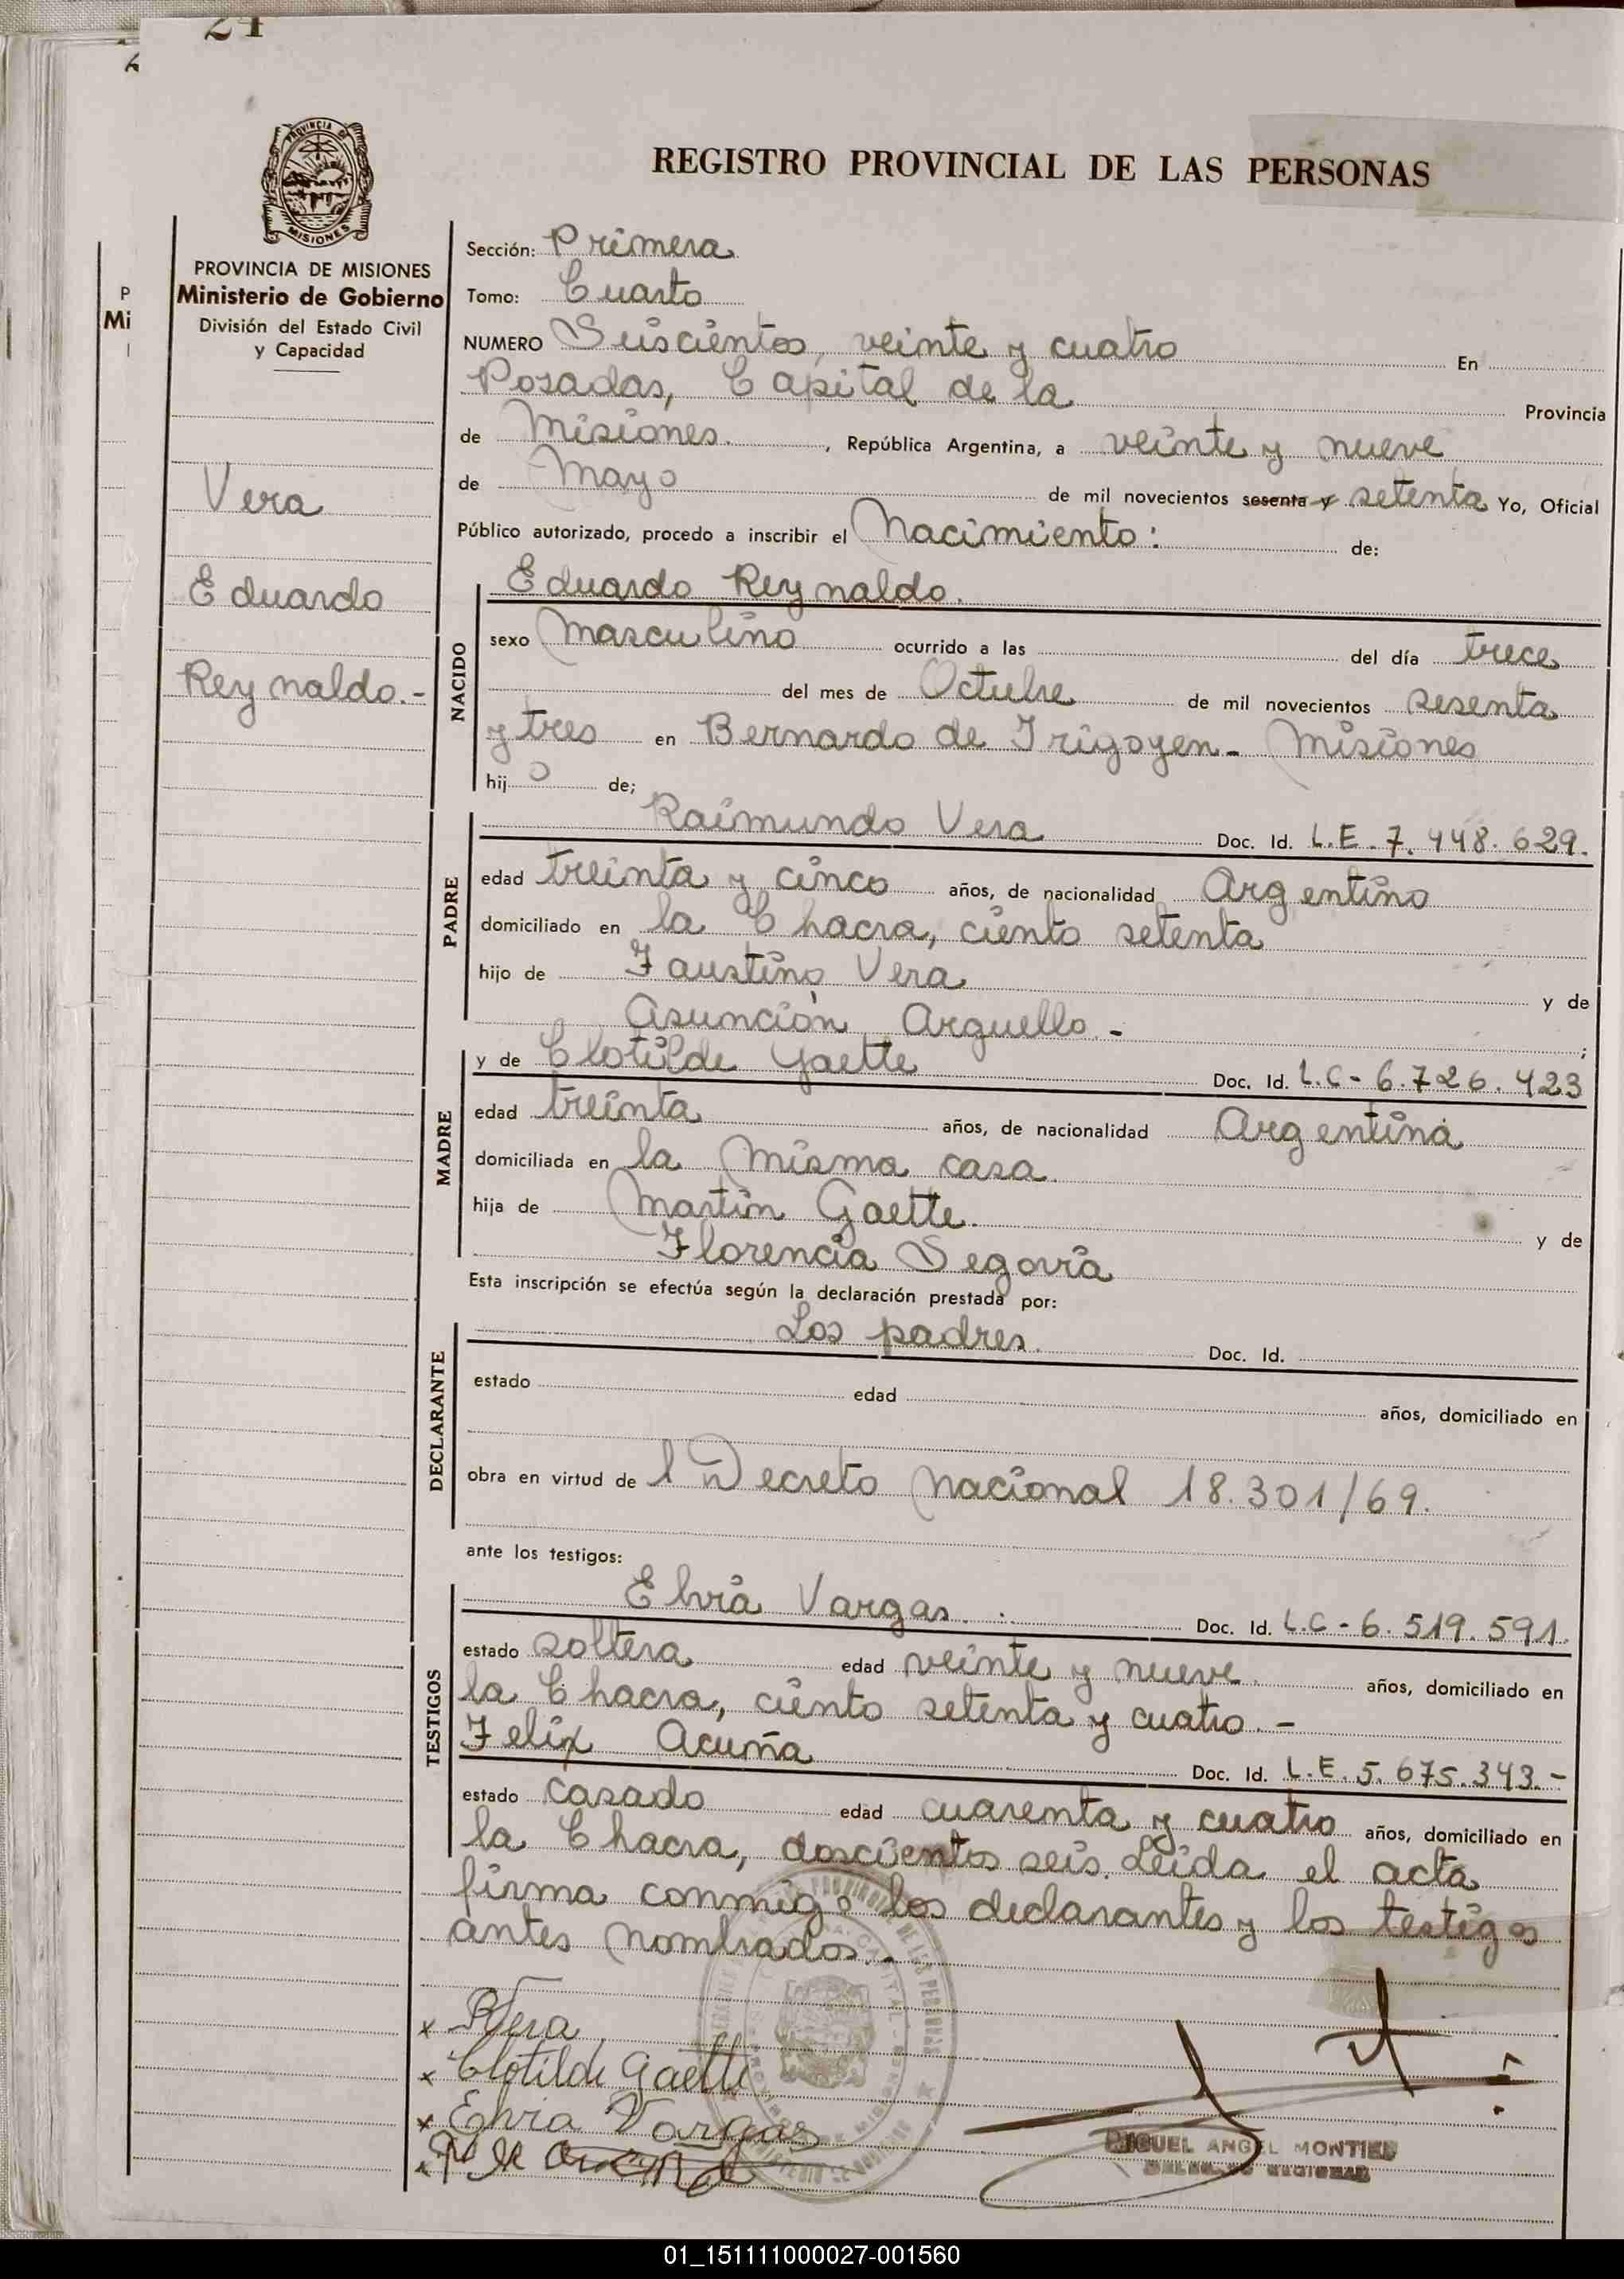 24
REGISTRO PROVINCIAL DE LAS PERSONAS
PROVINCIA DE
MISIONES
PROVINCIA DE MISIONES
Ministerio de Gobierno
División del Estado Civil
y Capacidad
P
Mi
Vera
Eduardo
Reynaldo.-
Sección: Primera
Tomo: Cuarto
NUMERO Seiscientos, veinte y cuatro En
Posadas, Capital de la Provincia
de Misiones. , República Argentina, a veinte y nueve
de Mayo de mil novecientos sesenta y setenta Yo, Oficial
Público autorizado, procedo a inscribir el Nacimiento: de:
NACIDO
Eduardo Reynaldo.
sexo Masculino ocurrido a las del día trece
del mes de Octubre de mil novecientos sesenta
y tres en Bernardo de Irigoyen- Misiones
hijo de;
PADRE
Raimundo Vera Doc. Id. L.E. 7. 448. 629.
edad treinta y cinco años, de nacionalidad Argentino
domiciliado en la Chacra, ciento setenta
hijo de Faustino Vera y de
Asunción Arguello.- ;
MADRE
y de Clotilde Gaette Doc. Id. L.C- 6.726.423
edad treinta años, de nacionalidad Argentina
domiciliada en la misma casa.
hija de Martin Gaette. y de
Florencia Segovia
Esta inscripción se efectúa según la declaración prestada por:
DECLARANTE
Los padres. Doc. Id.
estado edad años, domiciliado en
obra en virtud de l Decreto Nacional 18.301/69.
ante los testigos:
TESTIGOS
Elvia Vargas. Doc. Id. L.C-6.519.591.
estado soltera edad veinte y nueve. años, domiciliado en
la Chacra, ciento setenta y cuatro.-
Felix Acuña Doc. Id. L.E. 5.675.343.-
estado casado edad cuarenta y cuatro años, domiciliado en
la Chacra, doscientos seis. Leida el acta
firma conmigo los declarantes y los testigos
antes nombrados.-
x RVera
x Clotilde Gaette
x Elvia Vargas
MIGUEL ANGEL MONTIEL
01_151111000027-001560